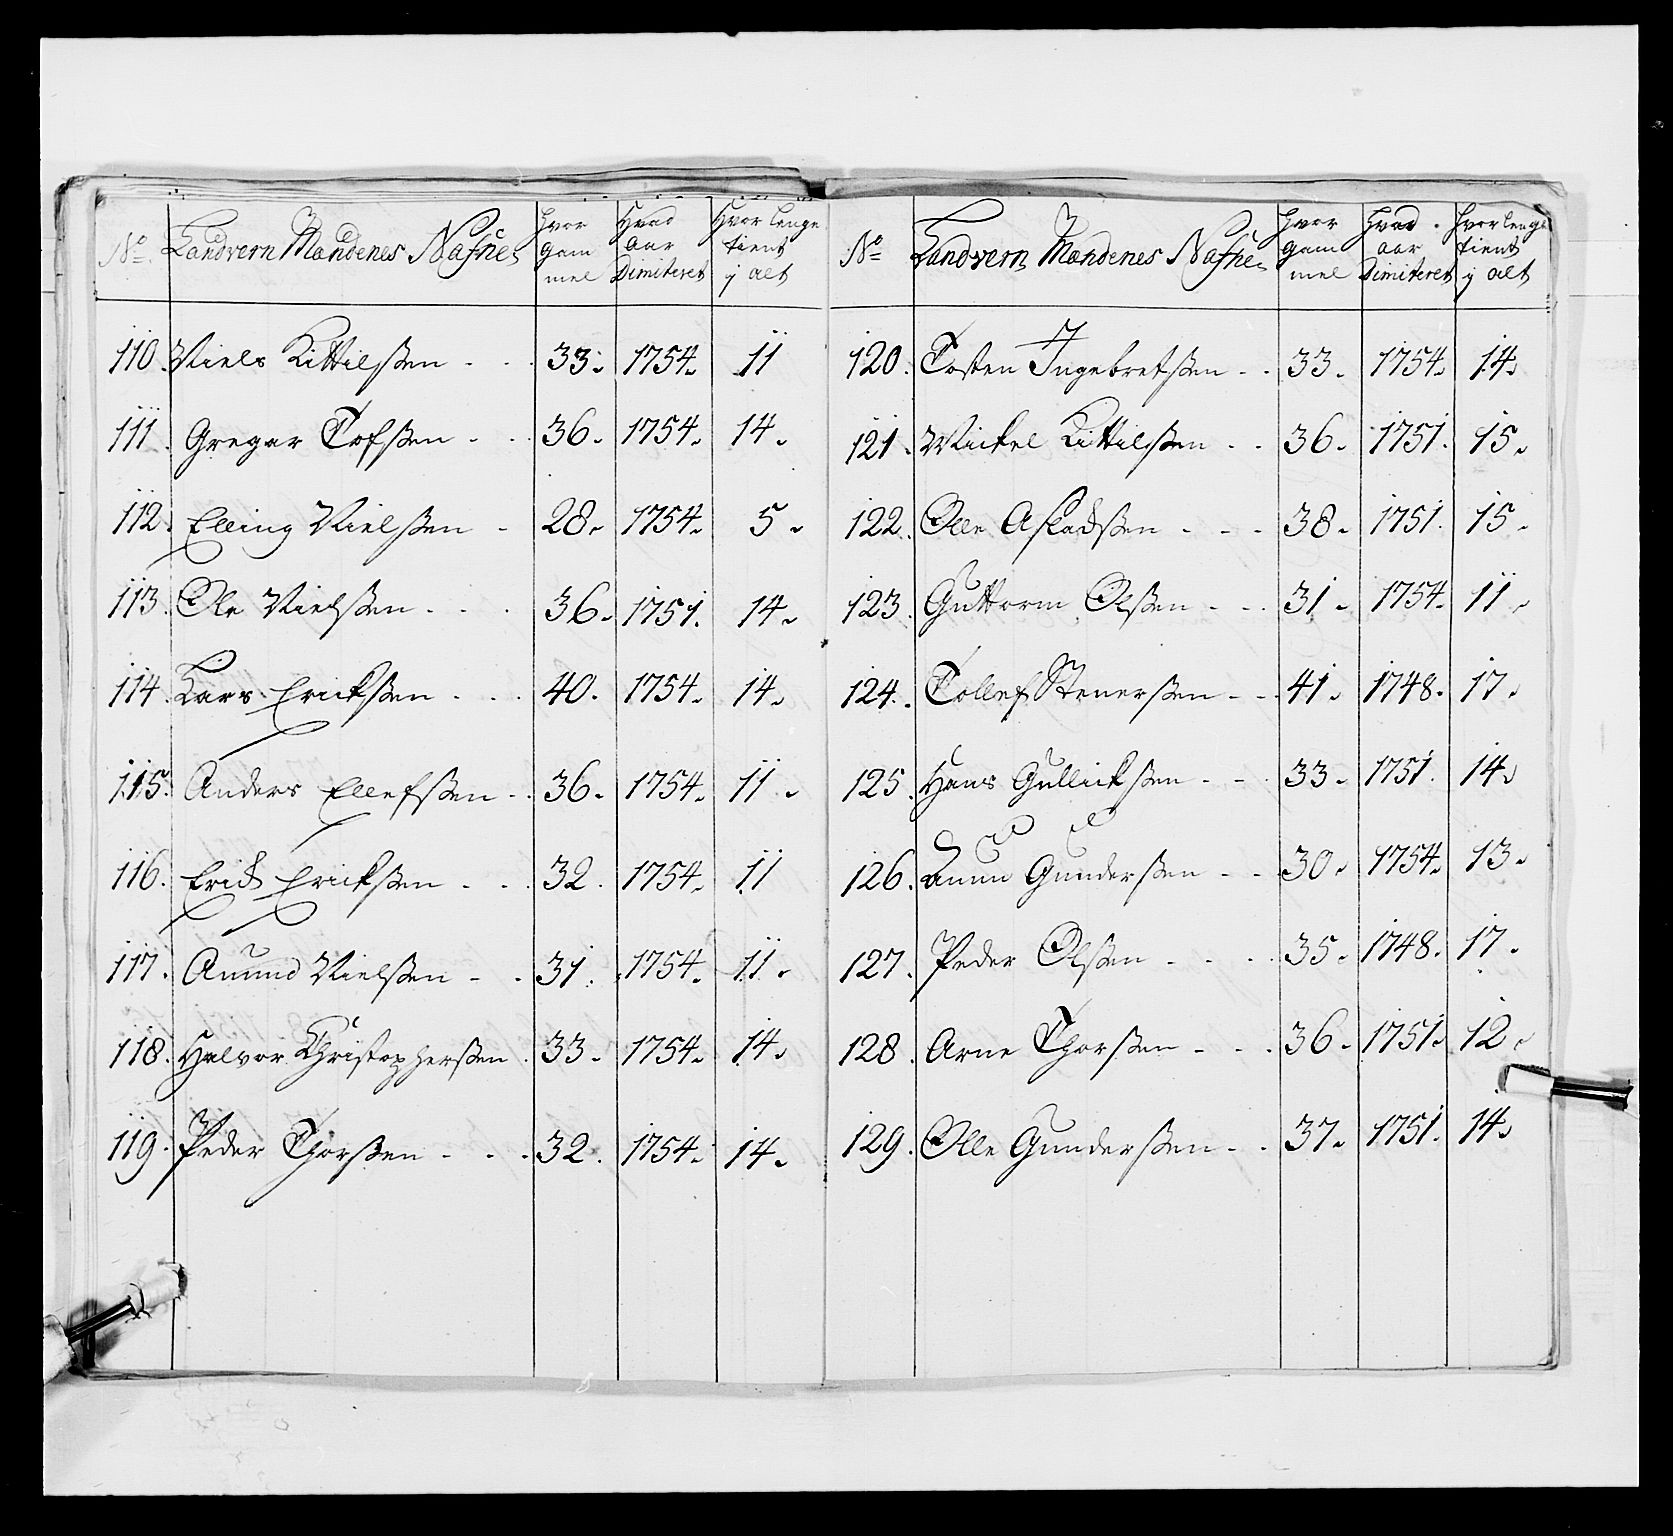 No Landvern Mandenes Nafne Hvor gam mel Hvad aar Dimiteret Hvor lenge tient j alt
110. Niels Kittilßen - - 33. 1754. 11
111. Gregar Tofßen - - 36. 1754. 14.
112. Elling Nielßen - 28. 1754. 5.
113. Ole Nielßen - - - 36. 1751. 14.
114. Lars Erickßen - - - 40. 1754. 14.
115. Anders Ellefßen - - 36. 1754. 11.
116. Erich Erickßen - - - 32. 1754. 11
117. Amund Nielßen - - 31. 1754. 11.
118. Halvor Christopherßen - 33. 1754. 14.
119. Peder Thorßen - - - 32. 1754. 14.
No Landvern Mandenes Nafne Hvor gam mel Hvad aar Dimiteret Hvor lenge tient j alt
120. Tosten Ingebretßen - - 33. 1754. 14.
121. Mickel Kittilßen - - 36. 1751. 15.
122. Olle Asladßen - - - 38. 1751. 15.
123. Guttorm Olßen - - - 31. 1754. 11.
124. Tollef Stenerßen - - 41. 1748. 17.
125. Hans Gullickßen - - - 33. 1751. 14.
126. Anun Gunderßen - - 30. 1754. 13.
127. Peder Olßen - - - - 35. 1748. 17.
128. Arne Thorßen - - - 36. 1751. 12.
129. Olle Gunderßen - - 37. 1751. 14.